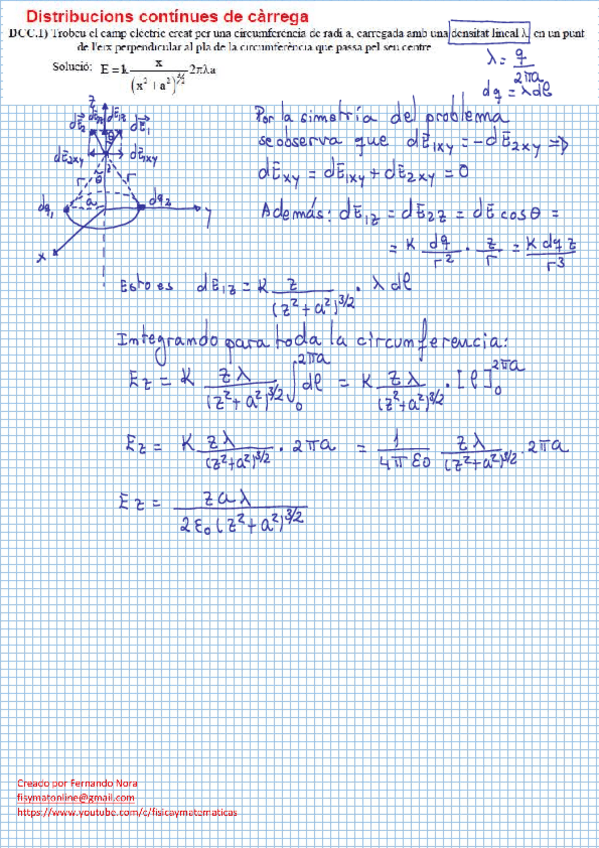 Distribucions contínues de càrrega
DCC.1) Trobeu el camp elèctric creat per una circumferència de radi a, carregada amb una densitat lineal λ, en un punt
de l'eix perpendicular al pla de la circumferència que passa pel seu centre.
Solució: E = k x/(x² + a²)^(3/2) 2πλa
λ = q/2πa
dq = λ dl
z
dE⃗₂ dE⃗₂z dE⃗₁z dE⃗₁
dE⃗₂xy dE⃗₁xy
θ
r z r
dq₁ a dq₂
y
x
Por la simetría del problema
se observa que dE⃗₁xy = -dE⃗₂xy ⇒
dE⃗xy = dE⃗₁xy + dE⃗₂xy = 0
Además: dE⃗₁z = dE⃗₂z = dE⃗ cos θ =
= K dq/r² · z/r = K dq z/r³
Esto es dE₁z = K z/(z² + a²)^(3/2) · λ dl
Integrando para toda la circumferencia:
Ez = K zλ/(z² + a²)^(3/2) ∫₀^2πa dl = K zλ/(z² + a²)^(3/2) · [l]₀^2πa
Ez = K zλ/(z² + a²)^(3/2) · 2πa = 1/4πε₀ zλ/(z² + a²)^(3/2) · 2πa
Ez = zaλ/2ε₀(z² + a²)^(3/2)
Creado por Fernando Nora
fisymatonline@gmail.com
https://www.youtube.com/c/fisicaymatematicas